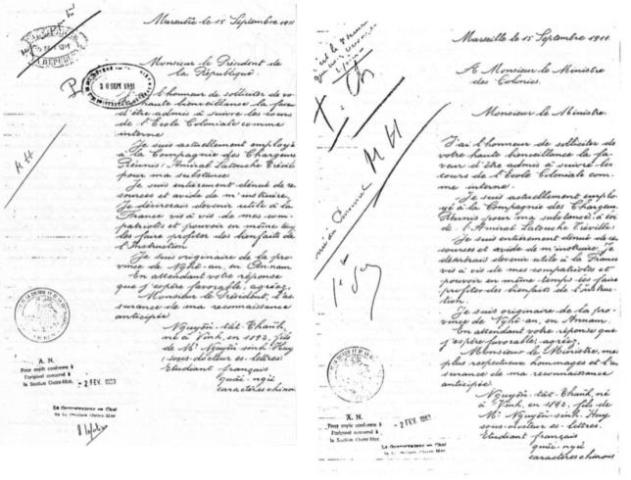 Marseille le 15 Septembre 1911
Monsieur le Président de
la République
J'ai l'honneur de solliciter de vo
haute bienveillance la fave
d'être admis à suivre les cours
de l'Ecole Coloniale comme
interne
Je suis actuellement employé
à la Compagnie des Chargeurs
Réunis: Amiral Latouche Tréville
pour ma subsistance
Je suis entièrement dénué de re
sources et avide de m'instruire.
Je désirerais devenir utile à la
France vis à vis de mes com
patriotes et pouvoir en même tem
les faire profiter des bienfaits de
l'Instruction
Je suis originaire de la pro
vince de Nghê-an, en Annam
En attendant votre réponse
que j'espère favorable, agréez,
Monsieur le Président, l'as
surance de ma reconnaissance
anticipée
Nguyễn-tất-Thành,
né à Vinh, en 1892, fils
de Mr Nguyễn sinh Huy
sous-docteur ès-lettres
Etudiant français
quốc-ngữ
caractères chinois
18 SEPT 1911
MH
A. N.
Pour copie conforme à
l'original conservé à
la Section Outre-Mer.
- 2 FEV. 1983
Le Conservateur en Chef
de la Section Outre-Mer
Marseille le 15 Septembre 1911
A Monsieur le Ministre
des Colonies.
Monsieur le Ministre
J'ai l'honneur de solliciter de
votre haute bienveillance la fa
veur d'être admis à suivre les
cours de l'Ecole Coloniale com
me interne.
Je suis actuellement employ
é à la Compagnie des Chargeur
Réunis pour ma subsistance à bord
de l'Amiral Latouche Tréville.
Je suis entièrement dénué de re
sources et avide de m'instruire. Je
désirerais devenir utile à la France
vis à vis de mes compatriotes et
pouvoir en même temps les faire
profiter des bienfaits de l'instruc
tion.
Je suis originaire de la pro
vince de Nghê-an, en Annam.
En attendant votre réponse que
j'espère favorable, agréez,
Monsieur le Ministre, mes
plus respectueux hommages et l'as
surance de ma reconnaissance
anticipée
Nguyễn-tất-Thành, né
à Vinh, en 1892, fils de
Mr Nguyễn-sinh-Huy
sous-docteur ès-lettres.
Etudiant français
quốc-ngữ
caractères chinois
MH
A. N.
Pour copie conforme à
l'original conservé à
la Section Outre-Mer.
- 2 FEV. 1983
Le Conservateur en Chef
de la Section Outre-Mer